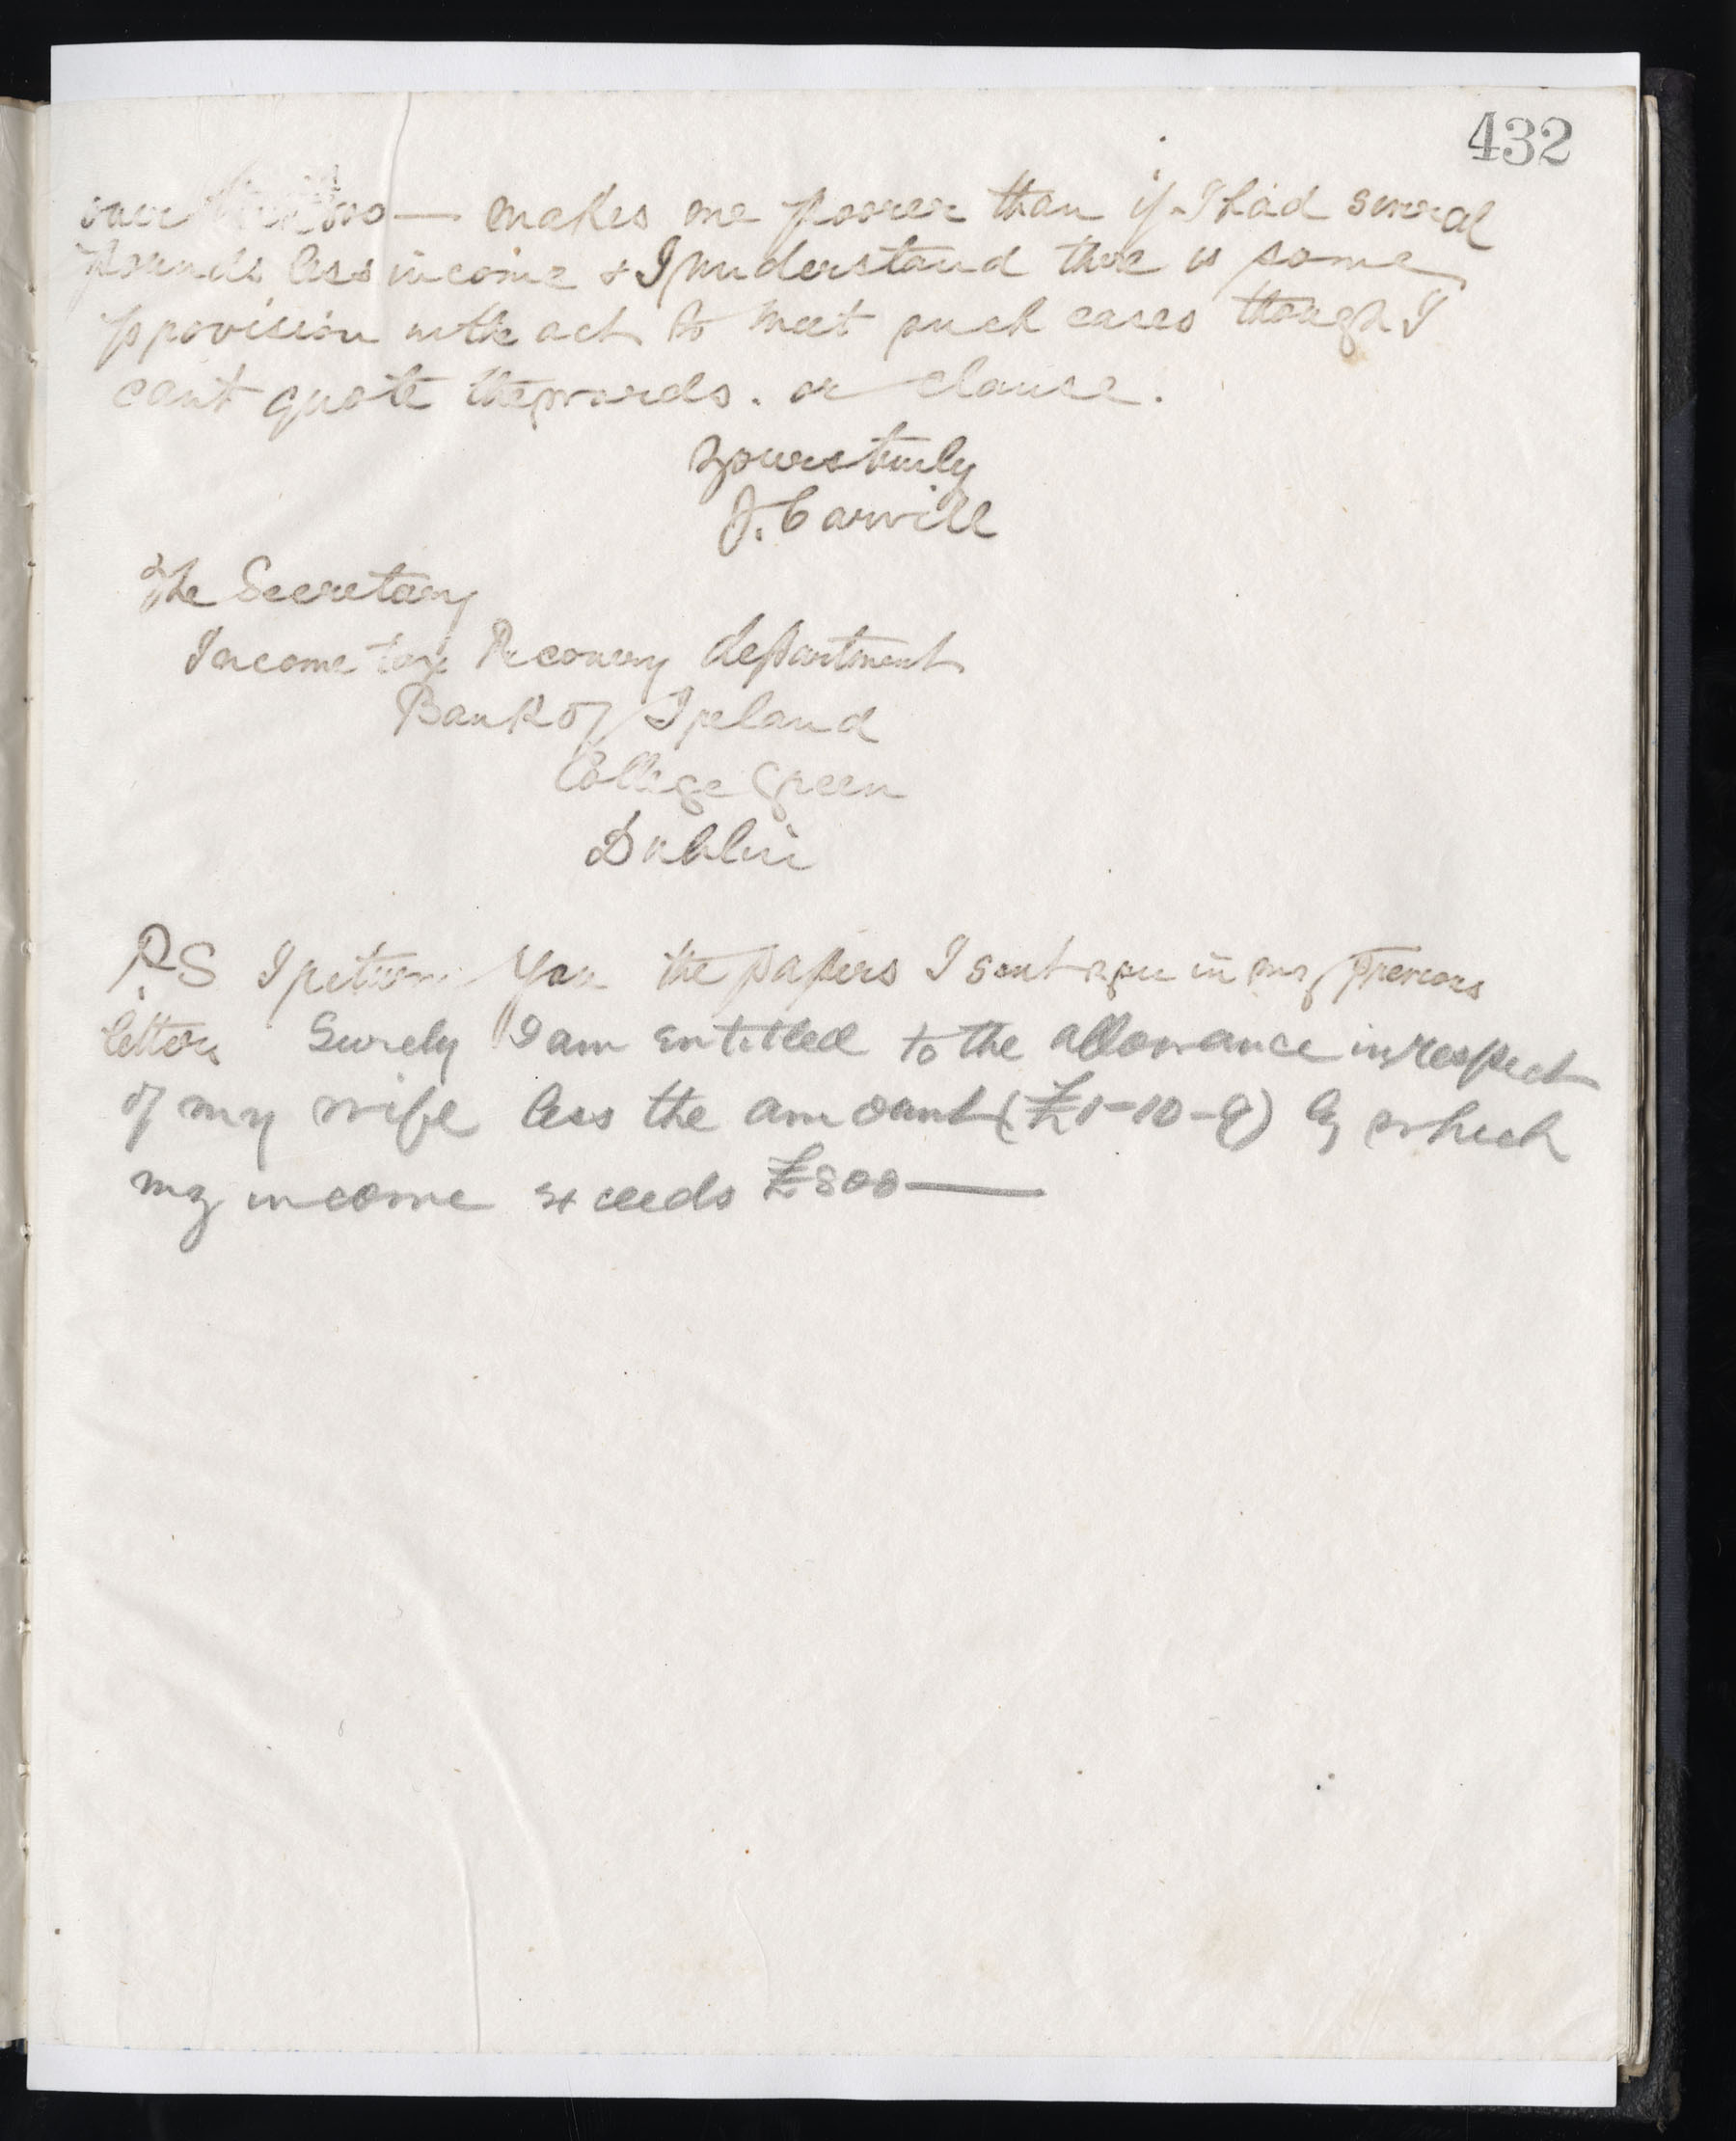 432
over — makes me poorer than if I had several
pounds less income & I understand there is some
provision in the act to meet such cases though I
cant quote the words. or clause.
Yours truly
J. Carvill
The Secretary
Income tax Recovery department
Bank of Ireland
College Green
Dublin
PS I return you the papers I sent you in my previous
letter Surely I am entitled to the allowance in respect
of my wife less the amount (£1-10-9) by which
my income exceeds £800—